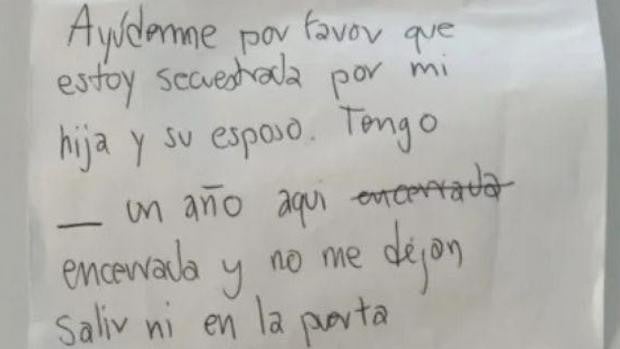 Ayúdenme por favor que
estoy secuestrada por mi
hija y su esposo. Tengo
_ un año aqui encerrada
encerrada y no me dejan
salir ni en la puerta